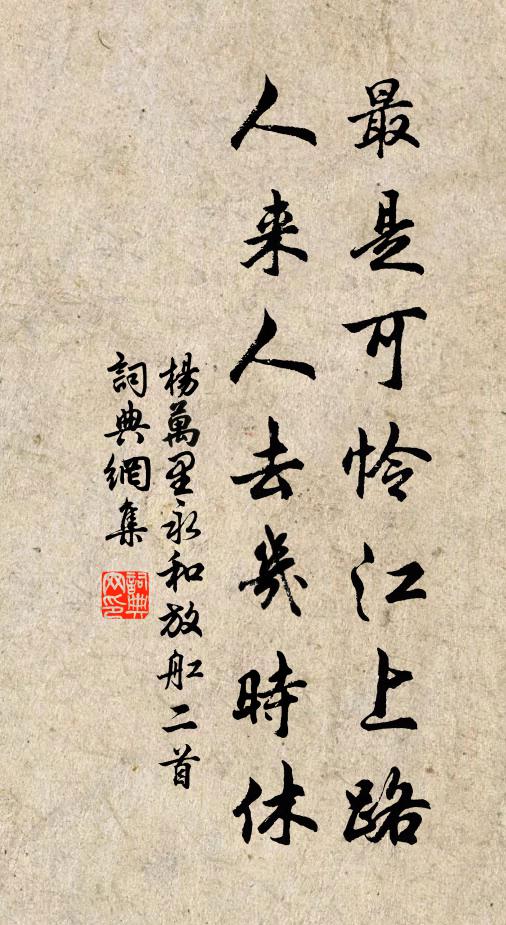 最是可怜江上路
人来人去幾時休
楊萬里永和放舡二首
詞典網集
詞典网印